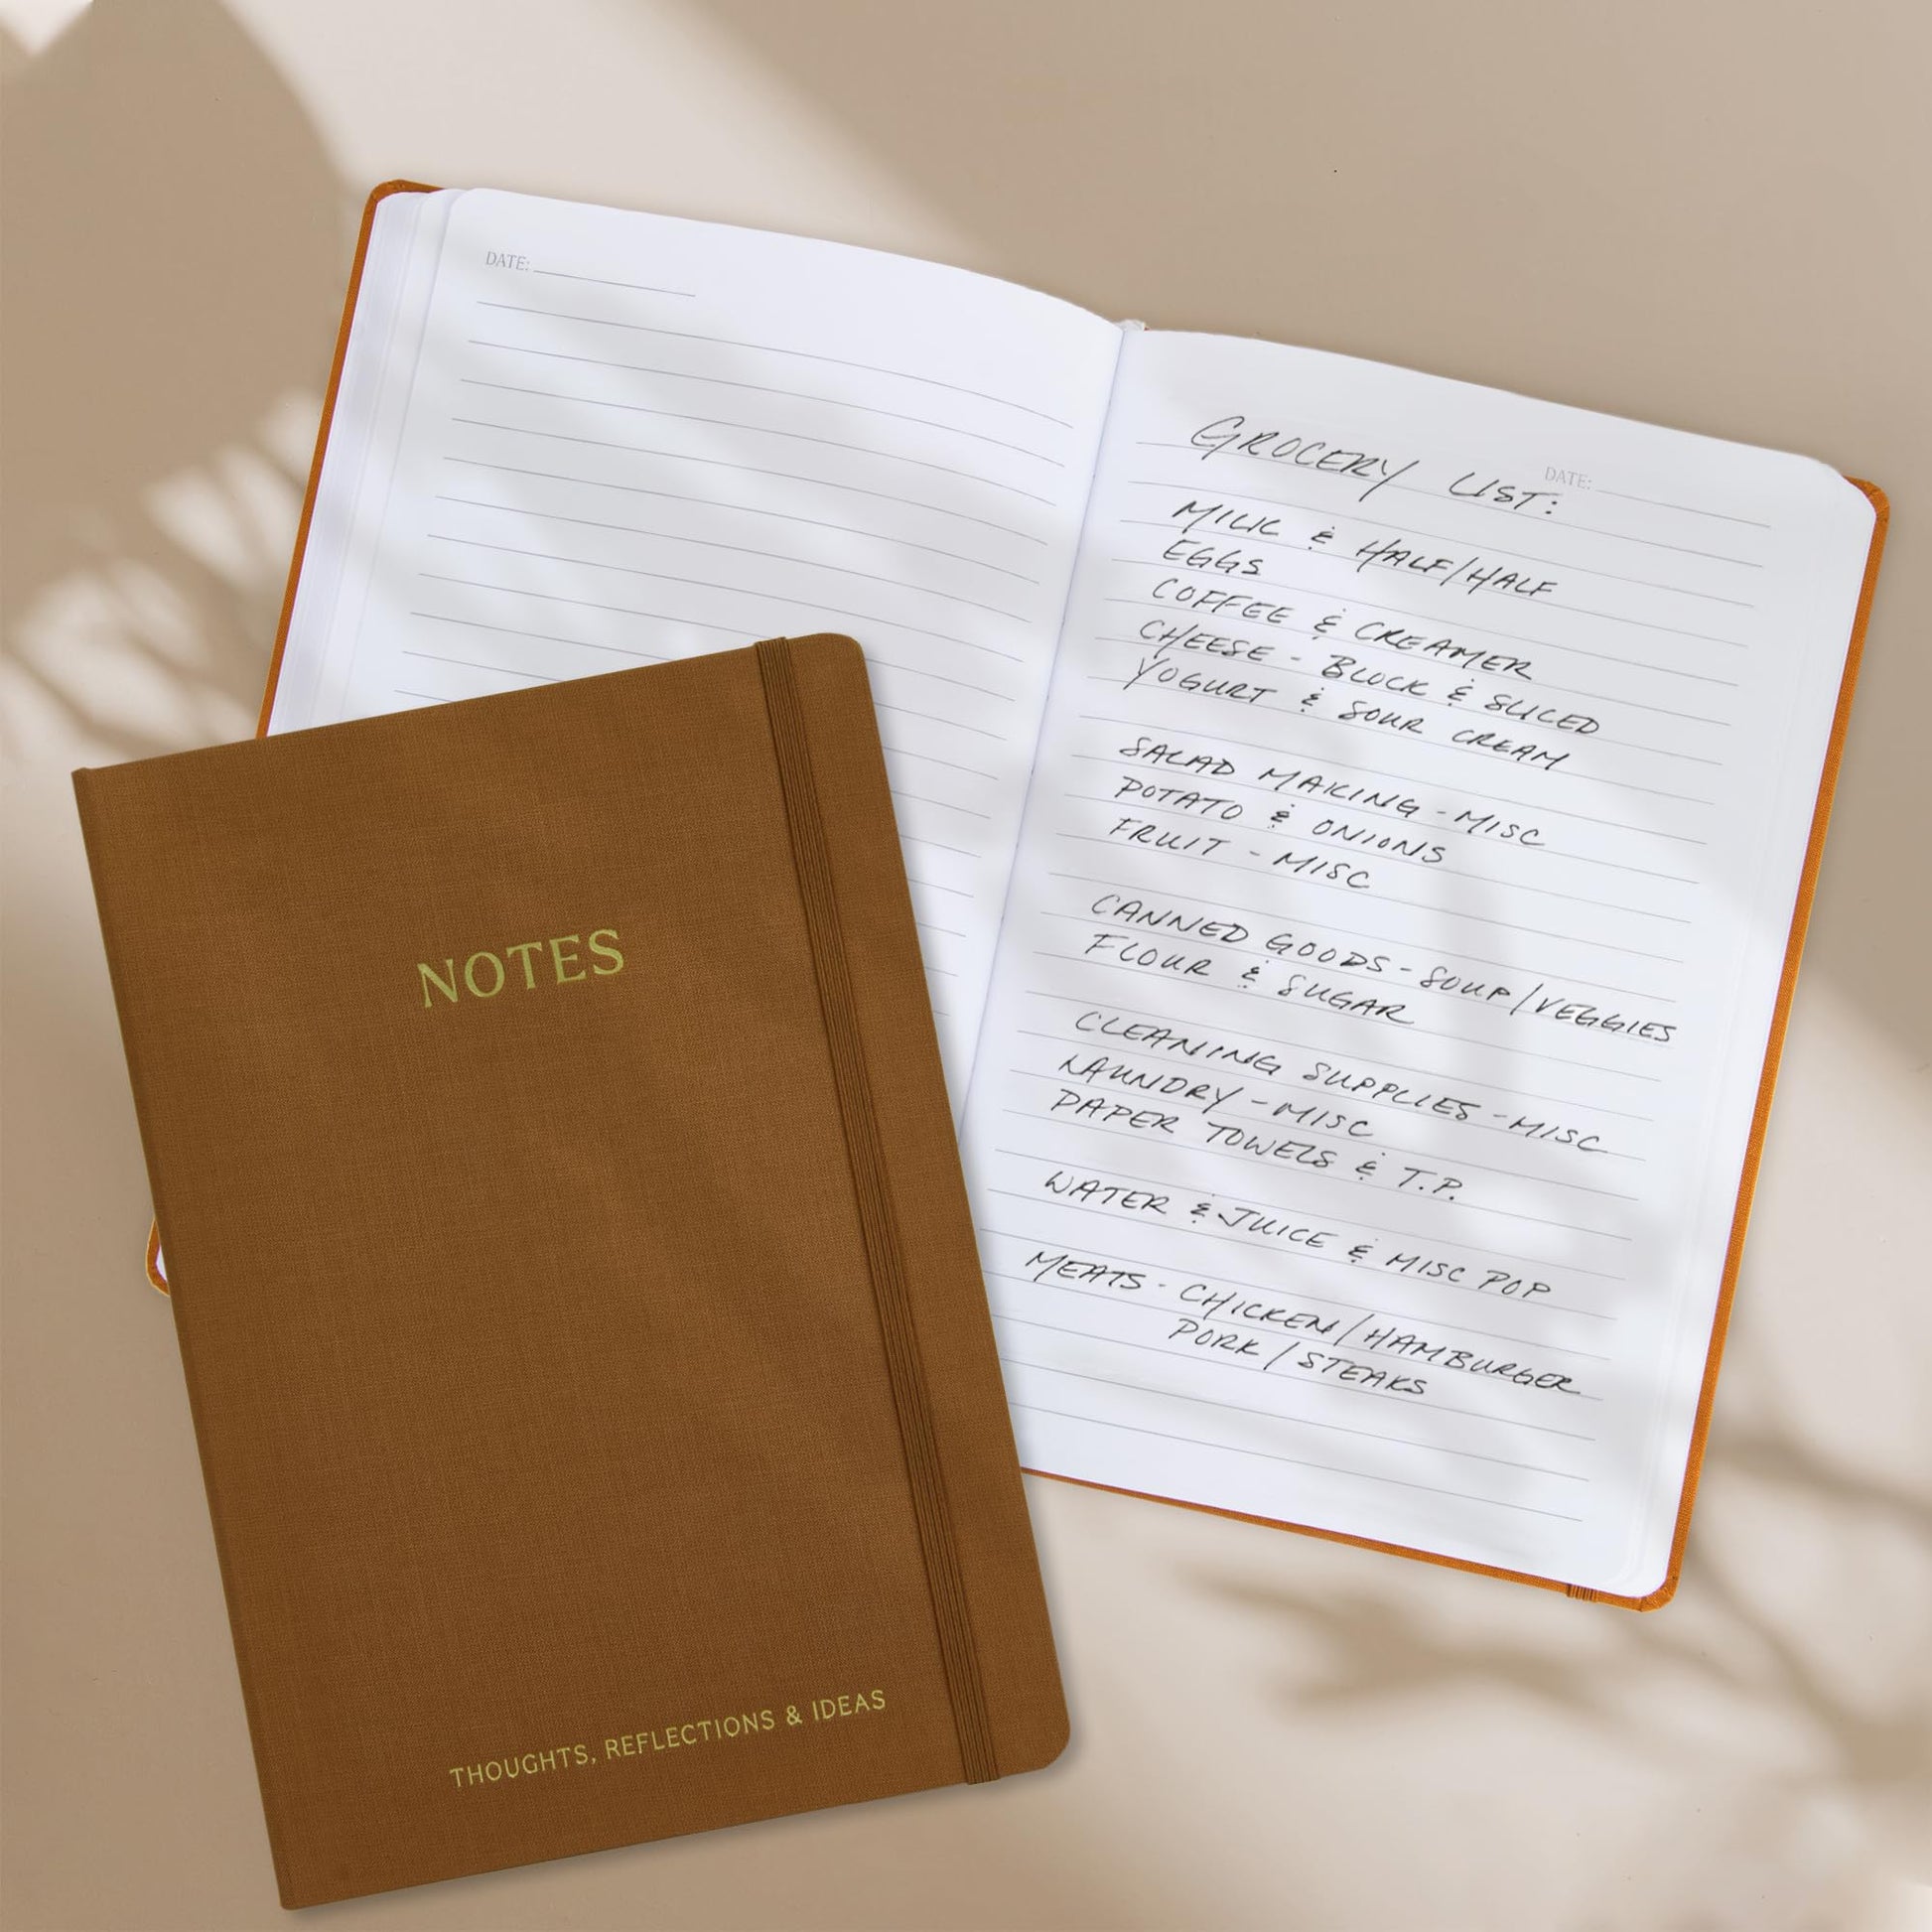 DATE:
GROCERY LIST:
DATE:
MILK & HALF/HALF
EGGS
COFFEE & CREAMER
CHEESE - BLOCK & SLICED
YOGURT & SOUR CREAM
SALAD MAKING - MISC
POTATO & ONIONS
FRUIT - MISC
CANNED GOODS - SOUP/VEGGIES
FLOUR & SUGAR
CLEANING SUPPLIES - MISC
LAUNDRY - MISC
PAPER TOWELS & T.P.
WATER & JUICE & MISC POP
MEATS - CHICKEN/HAMBURGER
PORK/STEAKS
NOTES
THOUGHTS, REFLECTIONS & IDEAS